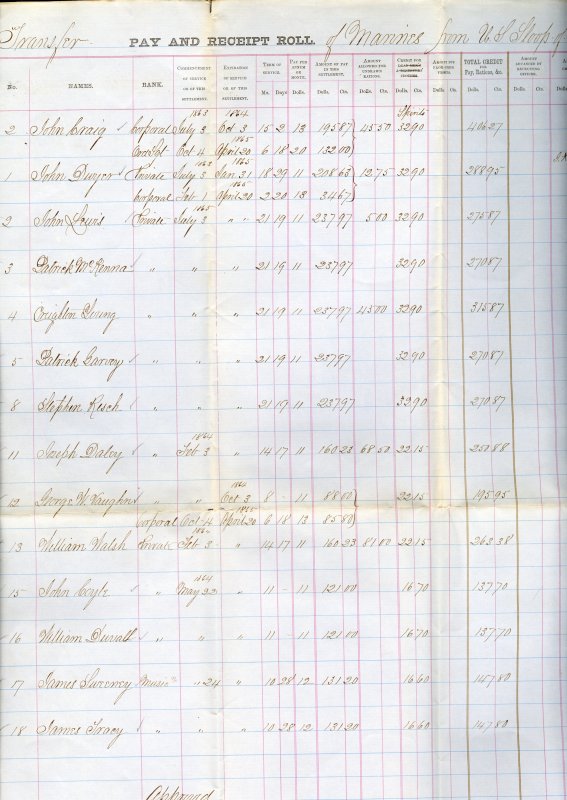 Transfer PAY AND RECEIPT ROLL. of Marines from U S Sloop of
No. NAMES. RANK. COMMENCEMENT OF SERVICE OR OF THIS SETTLEMENT. EXPIRATION OF SERVICE OR OF THIS SETTLEMENT. TERM OF SERVICE. PAY PER ANNUM OR MONTH. AMOUNT OF PAY IN THIS SETTLEMENT. AMOUNT ALLOWED FOR UNDRAWN RATIONS. CREDIT FOR TOTAL CREDIT FOR Pay, Rations, &c. AMOUNT ADVANCED BY RECRUITING OFFICER.
Mo. Days Dolls. Dolls. Cts. Dolls. Cts. Dolls. Cts. Dolls. Cts. Dolls. Cts. Dolls. Cts. Dolls.
Spirits
1863 1864
2 John Craig Corporal July 3 Oct 3 15 2 13 195 87 45 50 32 90 406 27
1865
Oct 4 April 20 6 18 20 132 00
1863 1865
1 John Dwyer Private July 3 Jan 31 18 29 11 208 63 12 75 32 90 288 95
1865
Corporal Feb 1 April 20 2 20 13 34 67
2 John Lewis Private July 3 " " 21 19 11 237 97 5 00 32 90 275 87
3 Patrick McKenna " " " 21 19 11 237 97 32 90 270 87
4 Crighton " " " 21 19 11 237 97 45 00 32 90 315 87
5 Patrick Garvey " " " 21 19 11 237 97 32 90 270 87
8 Stephen Resch " " " 21 19 11 237 97 32 90 270 87
1864
11 Joseph Daley " Feb 3 " 14 17 11 160 23 68 50 22 15 250 88
1864
12 George W. Vaughn " " Oct 3 8 - 11 88 00 22 15 195 95
1865
Corporal Oct 4 April 20 6 18 13 85 80
13 William Walsh Private Feb 3 " 14 17 11 160 23 81 00 22 15 263 38
1864
15 John Coyle " May 22 " 11 - 11 121 00 16 70 137 70
16 William Duvall " " " 11 - 11 121 00 16 70 137 70
17 James Sweeney Music " 24 " 10 28 12 131 20 16 60 147 80
18 James Tracy " " " 10 28 12 131 20 16 60 147 80
Approved